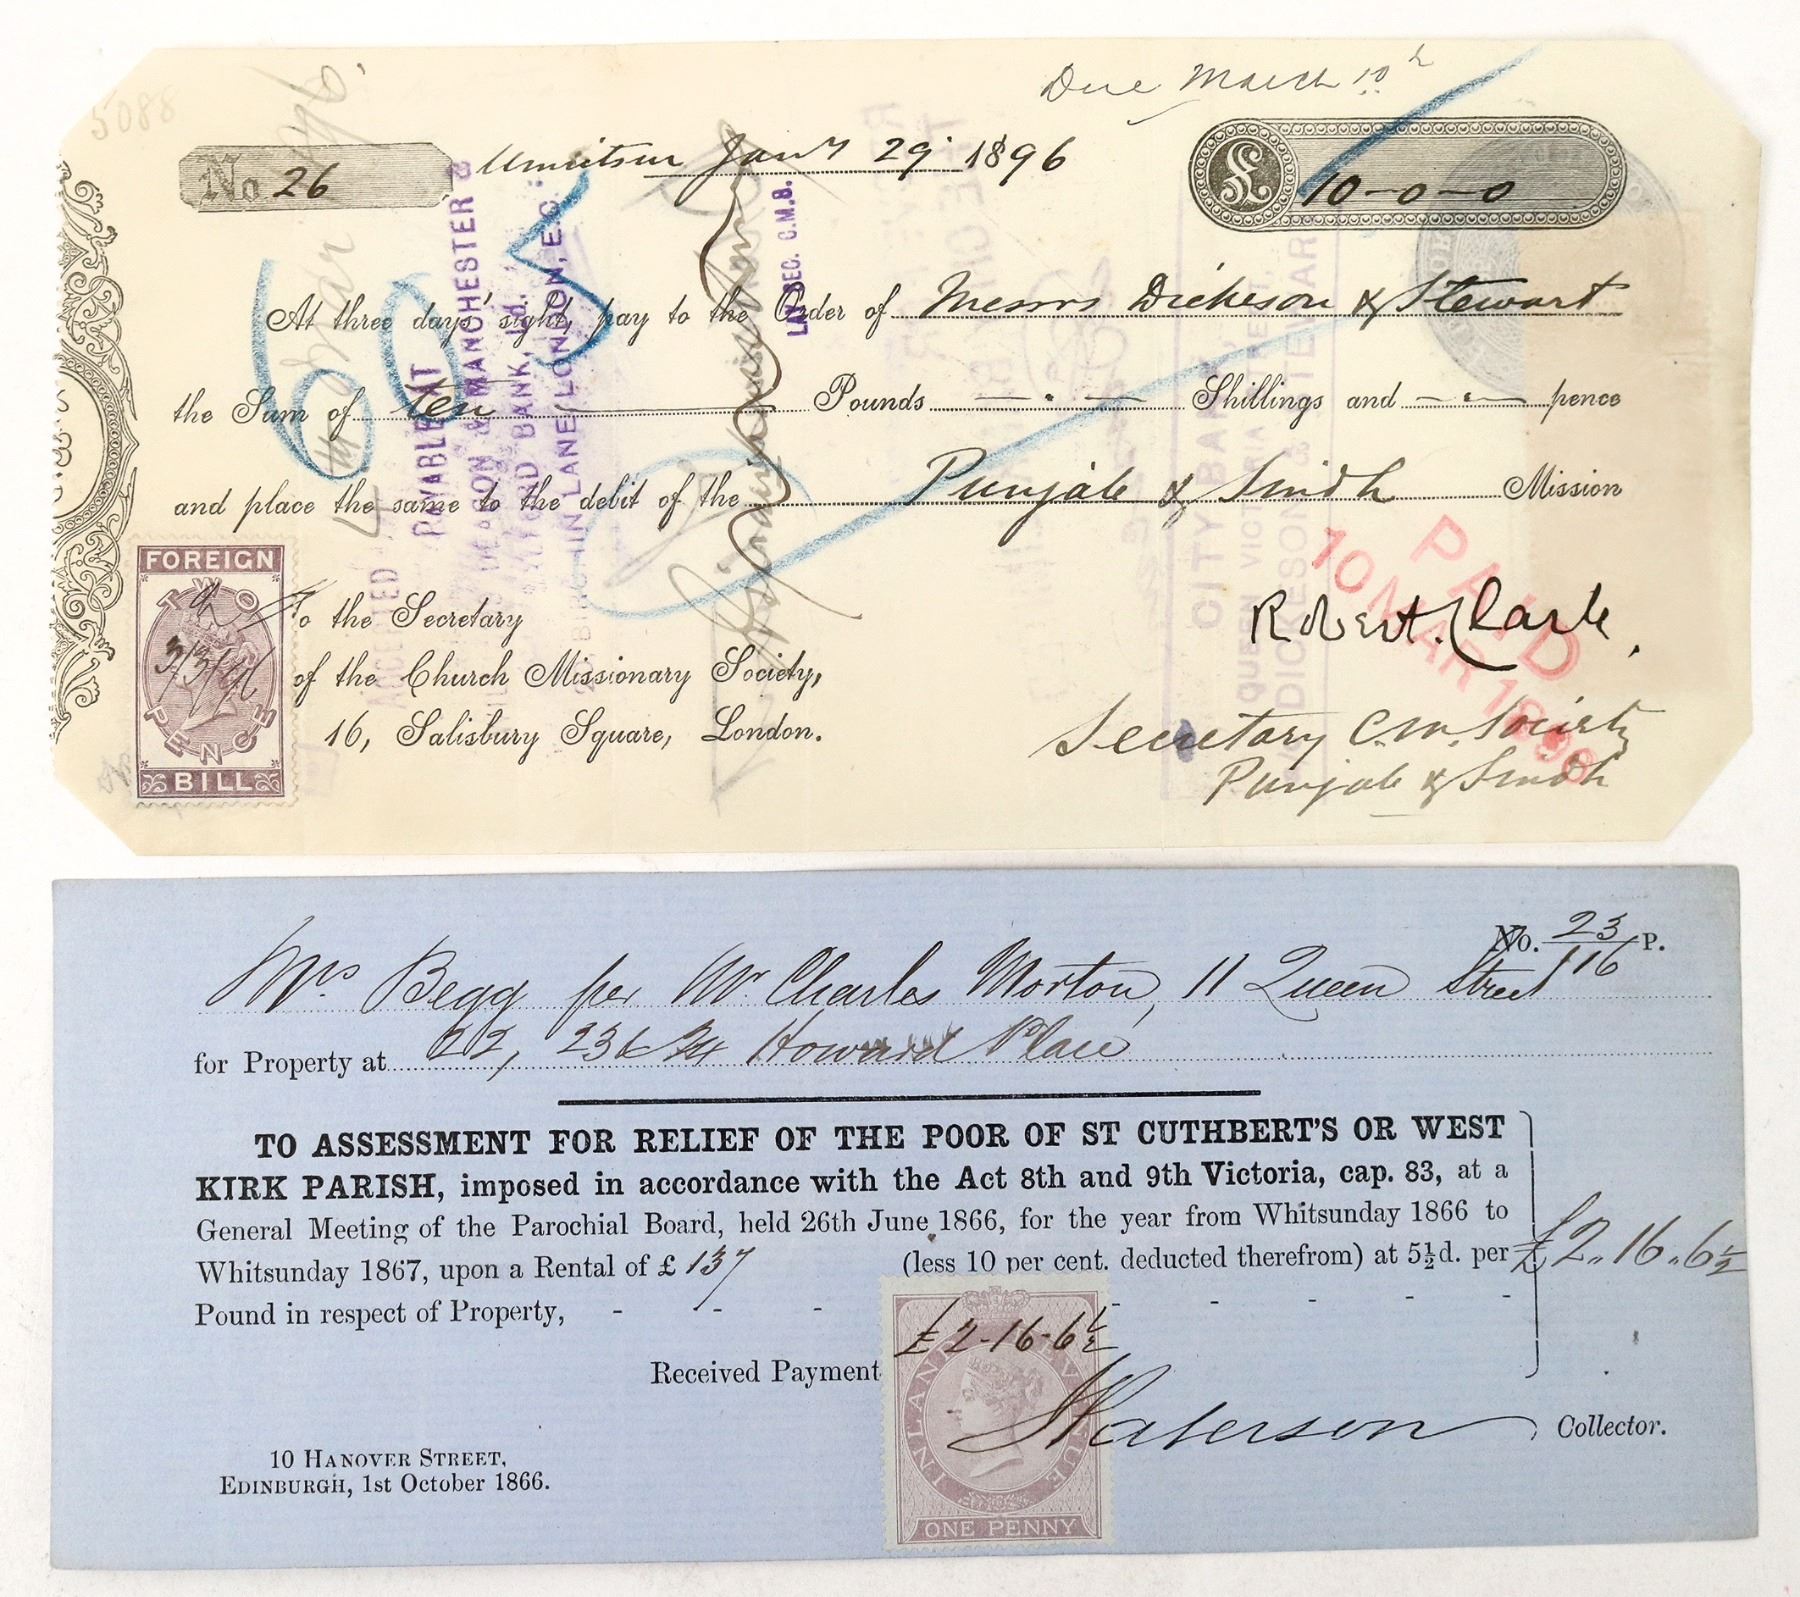 5088
Due March 10th
No 26
Umritsur Jany 29 1896
£ 10-0-0
At three days' sight, pay to the Order of Messrs Dickeson & Stewart
the Sum of ten Pounds Shillings and pence
and place the same to the debit of the Punjab & Sindh Mission
605
PAYABLE AT
MANCHESTER &
BANK, Ld.
LANE, LONDON, E.C.
LAY SEC. C.M.S.
CITY BANK,
QUEEN VICTORIA STREET,
DICKESON & STEWART
PAID
10 MAR 1896
FOREIGN
TWO
PENCE
BILL
3/3/96
To the Secretary
of the Church Missionary Society,
16, Salisbury Square, London.
Robert Clark.
Secretary C.M. Society
Punjab & Sindh
No. 23/116 P.
Mrs Begg per Mr Charles Morton, 11 Queen Street
for Property at 22, 23 & 24 Howard Place
TO ASSESSMENT FOR RELIEF OF THE POOR OF ST CUTHBERT'S OR WEST
KIRK PARISH, imposed in accordance with the Act 8th and 9th Victoria, cap. 83, at a
General Meeting of the Parochial Board, held 26th June 1866, for the year from Whitsunday 1866 to
Whitsunday 1867, upon a Rental of £ 137 (less 10 per cent. deducted therefrom) at 5½d. per
Pound in respect of Property, - - - - - - - -
£2.. 16.. 6½
£2-16-6½
Received Payment
INLAND REVENUE
ONE PENNY
Paterson
Collector.
10 HANOVER STREET,
EDINBURGH, 1st October 1866.